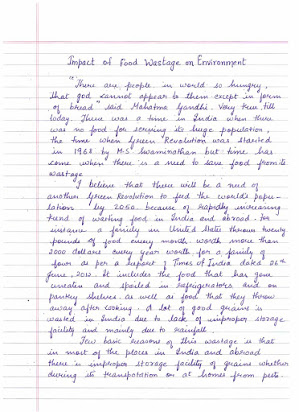 Impact of Food Wastage on Environment
"There are people in world so hungry,
that god cannot appear to them except in form
of bread" said Mahatma Gandhi. Very true till
today. There was a time in India when there
was no food for serving its huge population,
the time when Green Revolution was started
in 1968 by M.S. Swaminathan but time has
come when there is a need to save food from its
wastage.
I believe that there will be a need of
another Green Revolution to feed the world's popu-
lation by 2050 because of rapidly increasing
trend of wasting food in India and abroad. For
instance a family in United States throws twenty
pounds of food every month worth more than
2000 dollars every year worth for a family of
four as per a report, Times of India dated 26th
June, 2012. It includes the food that has gone
uneaten and spoiled in refrigerators and on
pantry shelves as well as food that they throw
away after cooking. A lot of good grains is
wasted in India due to lack of improper storage
facility and mainly due to rainfall.
Few basic reasons of this wastage is that
in most of the places in India and abroad
there is improper storage facility of grains whether
during its transportation or at homes from pests.